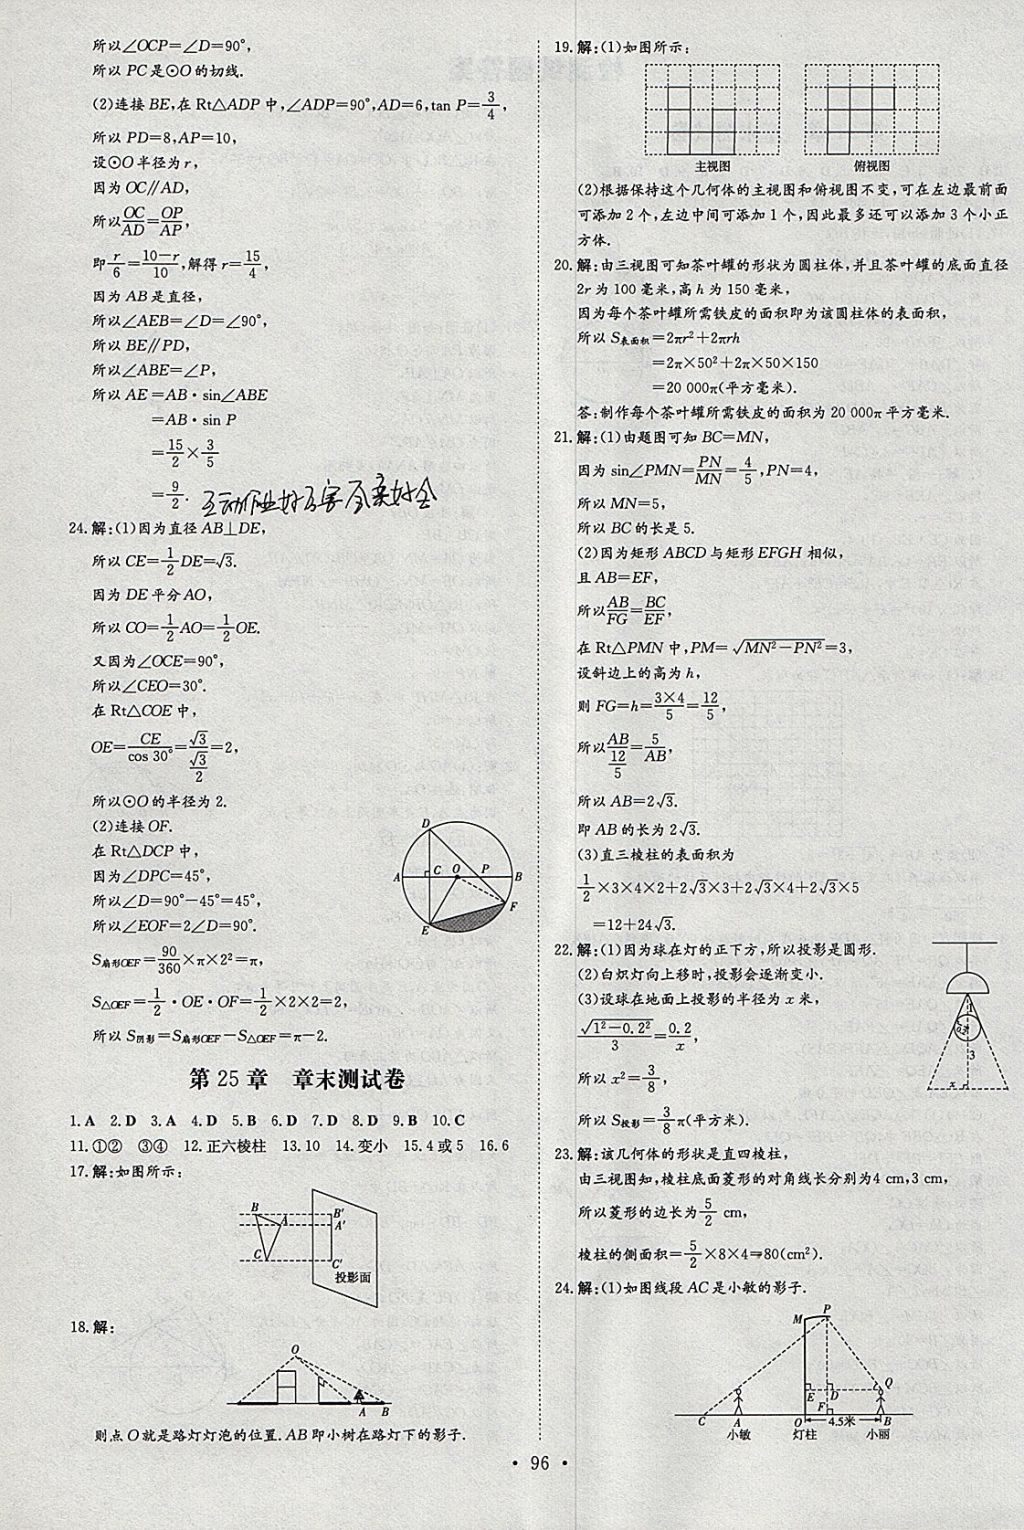 所以∠OCP=∠D=90°,
所以 PC是⊙O的切线.
(2)连接 BE,在 Rt△ADP 中,∠ADP=90°,AD=6,tan P=3/4,
所以 PD=8,AP=10,
设⊙O半径为r,
因为 OC∥AD,
所以OC/AD=OP/AP,
即r/6=(10-r)/10,解得r=15/4,
因为 AB是直径,
所以∠AEB=∠D=∠90°,
所以 BE∥PD,
所以∠ABE=∠P,
所以 AE=AB·sin∠ABE
=AB·sin P
=15/2×3/5
=9/2.
24.解:(1)因为直径 AB⊥DE,
所以 CE=1/2DE=√3.
因为 DE平分AO,
所以 CO=1/2AO=1/2OE.
又因为∠OCE=90°,
所以∠CEO=30°.
在 Rt△COE中,
OE=CE/cos 30°=√3/(√3/2)=2,
所以⊙O的半径为2.
(2)连接OF.
在 Rt△DCP中,
因为∠DPC=45°,
所以∠D=90°-45°=45°,
所以∠EOF=2∠D=90°.
S扇形OEF=90/360×π×2²=π,
S△OEF=1/2·OE·OF=1/2×2×2=2,
所以 S阴影=S扇形OEF-S△OEF=π-2.
D
A C O P B
F
E
第25章 章末测试卷
1.A 2.D 3.A 4.D 5.B 6.D 7.D 8.D 9.B 10.C
11.①② ③④ 12.正六棱柱 13.10 14.变小 15.4或5 16.6
17.解:如图所示:
B A B′
A′
C C′
投影面
18.解:
O
A B
则点O就是路灯灯泡的位置.AB即小树在路灯下的影子.
19.解:(1)如图所示:
主视图 俯视图
(2)根据保持这个几何体的主视图和俯视图不变,可在左边最前面
可添加2个,左边中间可添加1个,因此最多还可以添加3个小正
方体.
20.解:由三视图可知茶叶罐的形状为圆柱体,并且茶叶罐的底面直径
2r为100毫米,高h为150毫米,
因为每个茶叶罐所需铁皮的面积即为该圆柱体的表面积,
所以 S表面积=2πr²+2πrh
=2π×50²+2π×50×150
=20 000π(平方毫米).
答:制作每个茶叶罐所需铁皮的面积为20 000π平方毫米.
21.解:(1)由题图可知 BC=MN,
因为 sin∠PMN=PN/MN=4/5,PN=4,
所以 MN=5,
所以 BC的长是5.
(2)因为矩形 ABCD与矩形EFGH 相似,
且AB=EF,
所以AB/FG=BC/EF,
在 Rt△PMN中,PM=√(MN²-PN²)=3,
设斜边上的高为h,
则 FG=h=(3×4)/5=12/5,
所以AB/(12/5)=5/AB,
所以 AB=2√3.
即 AB的长为2√3.
(3)直三棱柱的表面积为
1/2×3×4×2+2√3×3+2√3×4+2√3×5
=12+24√3.
22.解:(1)因为球在灯的正下方,所以投影是圆形.
(2)白炽灯向上移时,投影会逐渐变小.
(3)设球在地面上投影的半径为x米,
√(1²-0.2²)/3=0.2/x,
所以x²=3/8,
所以 S投影=3/8π(平方米).
1
0.2
3
x
23.解:该几何体的形状是直四棱柱,
由三视图知,棱柱底面菱形的对角线长分别为4 cm,3 cm,
所以菱形的边长为5/2 cm,
棱柱的侧面积=5/2×8×4=80(cm²).
24.解:(1)如图线段AC是小敏的影子.
M P
E D Q
F
C A O 4.5米 B
小敏 灯柱 小丽
• 96 •